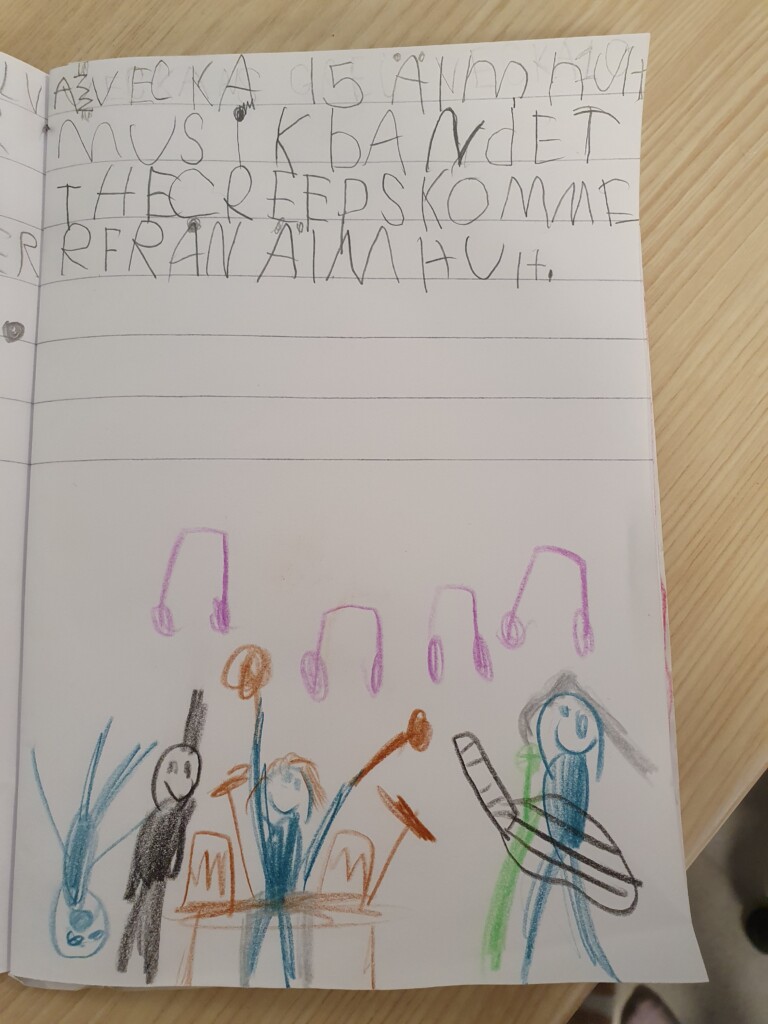 AV VECKA 15 ÄNMHUH
MUSIKbANdET
THECREEPSKOMME
RFRÅN ÄIMHUH.